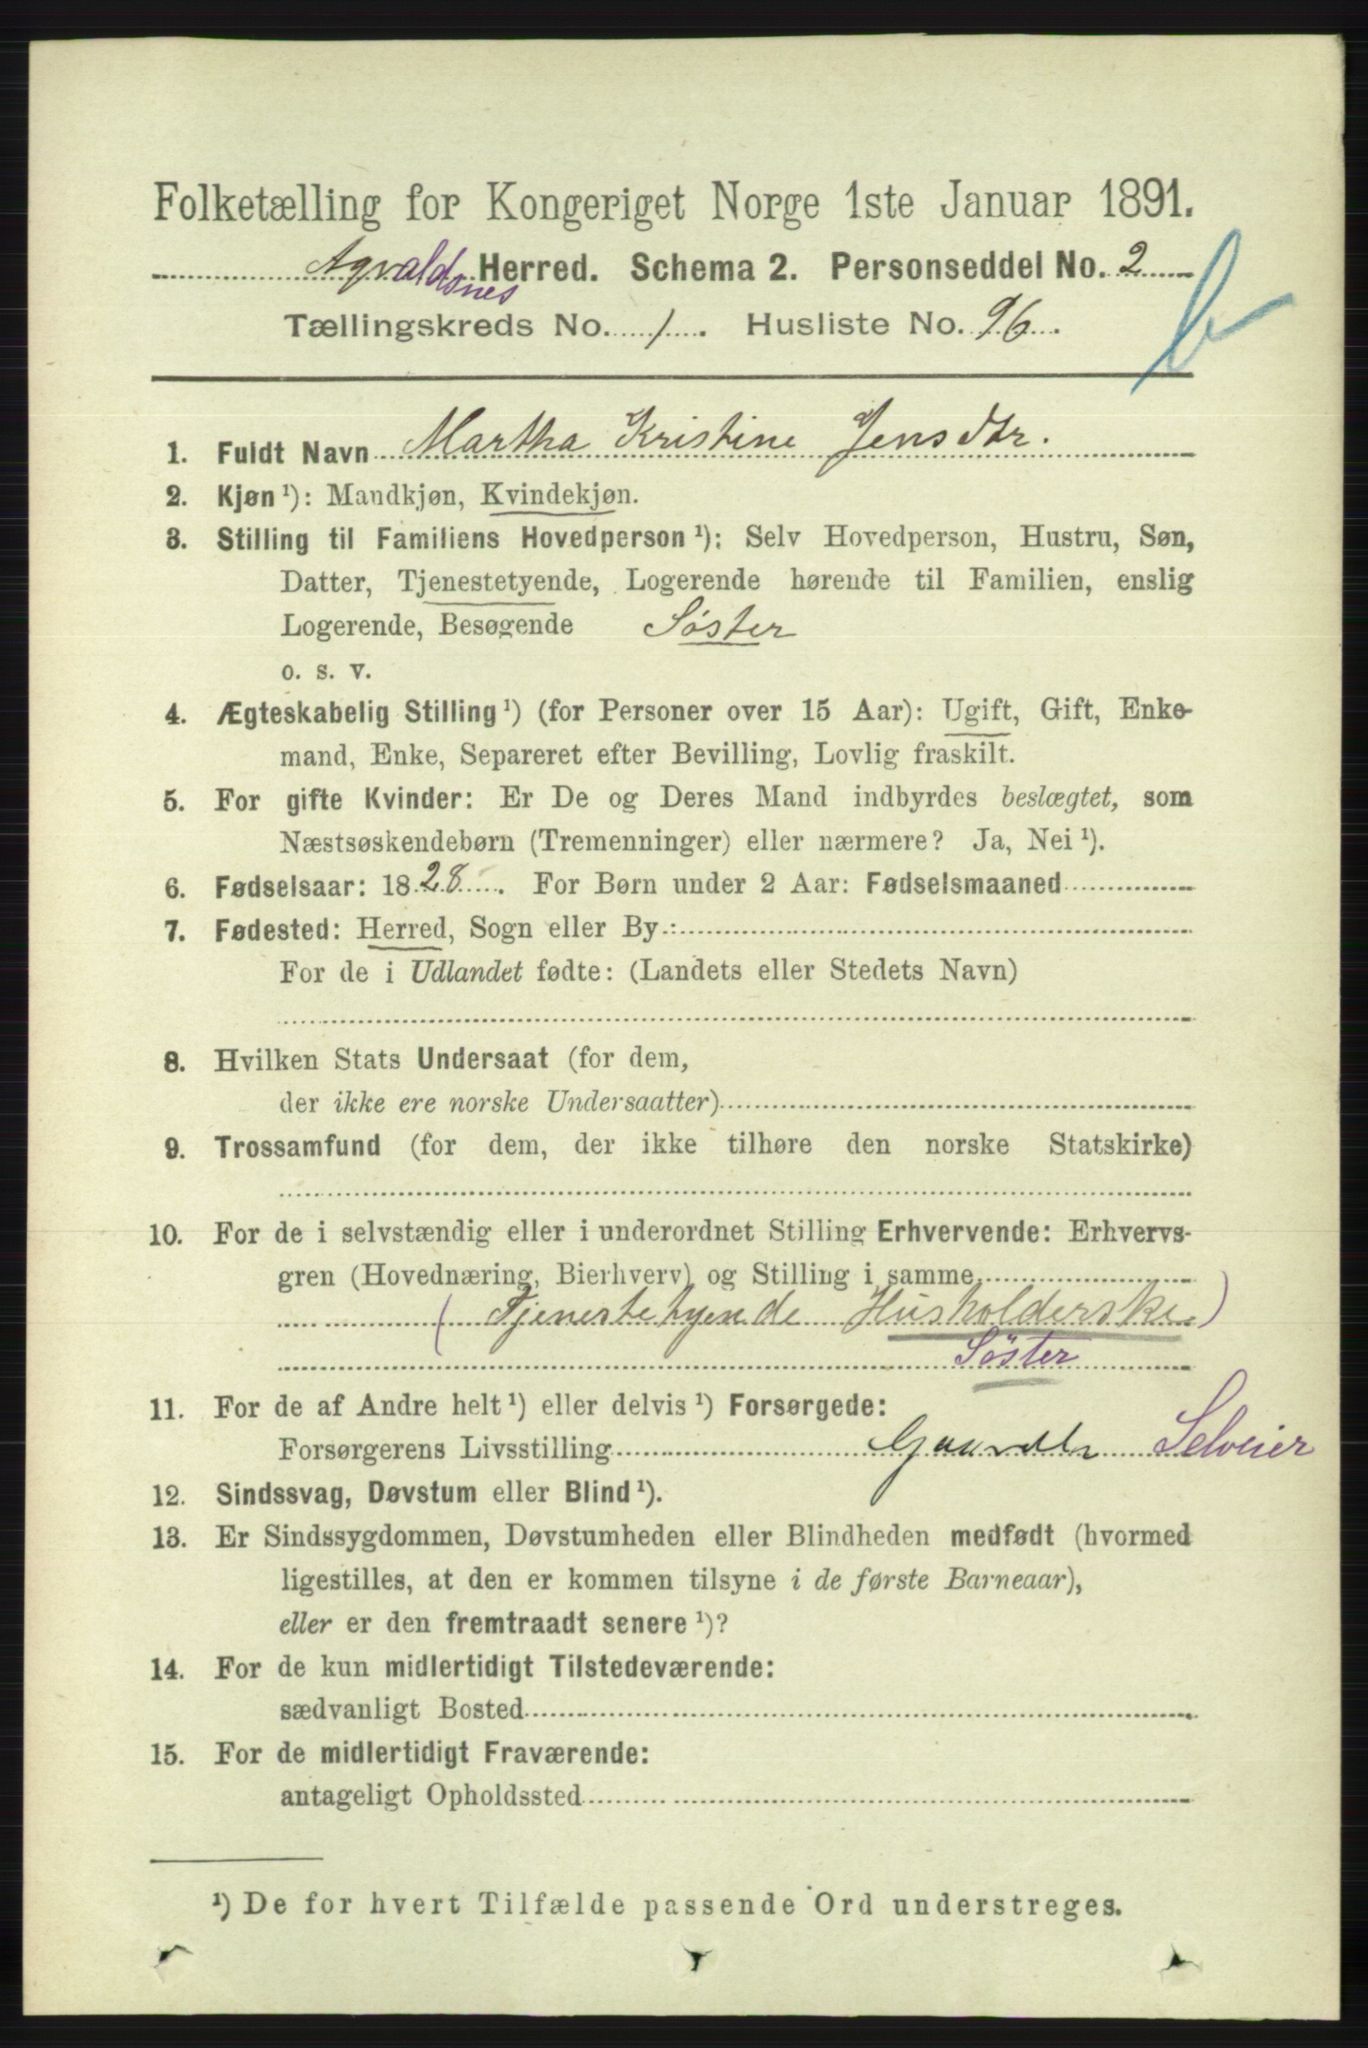 Folketælling for Kongeriget Norge 1ste Januar 1891.
Agvaldsnes Herred. Schema 2. Personseddel No. 2
Tællingskreds No. 1. Husliste No. 96.
b
1. Fuldt Navn Martha Kristine Jensdtr.
2. Kjøn ¹): Mandkjøn, Kvindekjøn.
3. Stilling til Familiens Hovedperson ¹): Selv Hovedperson, Hustru, Søn,
Datter, Tjenestetyende, Logerende hørende til Familien, enslig
Logerende, Besøgende Søster
o. s. v.
4. Ægteskabelig Stilling ¹) (for Personer over 15 Aar): Ugift, Gift, Enke-
mand, Enke, Separeret efter Bevilling, Lovlig fraskilt.
5. For gifte Kvinder: Er De og Deres Mand indbyrdes beslægtet, som
Næstsøskendebørn (Tremenninger) eller nærmere? Ja, Nei ¹).
6. Fødselsaar: 1828. For Børn under 2 Aar: Fødselsmaaned
7. Fødested: Herred, Sogn eller By:
For de i Udlandet fødte: (Landets eller Stedets Navn)
8. Hvilken Stats Undersaat (for dem,
der ikke ere norske Undersaatter)
9. Trossamfund (for dem, der ikke tilhøre den norske Statskirke)
10. For de i selvstændig eller i underordnet Stilling Erhvervende: Erhvervs-
gren (Hovednæring, Bierhverv) og Stilling i samme
(Tjenestetyende Husholderske)
Søster
11. For de af Andre helt ¹) eller delvis ¹) Forsørgede:
Forsørgerens Livsstilling Gaardbr Selveier
12. Sindssvag, Døvstum eller Blind ¹).
13. Er Sindssygdommen, Døvstumheden eller Blindheden medfødt (hvormed
ligestilles, at den er kommen tilsyne i de første Barneaar),
eller er den fremtraadt senere ¹)?
14. For de kun midlertidigt Tilstedeværende:
sædvanligt Bosted
15. For de midlertidigt Fraværende:
antageligt Opholdssted
¹) De for hvert Tilfælde passende Ord understreges.